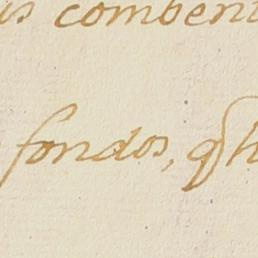 is combeni
fondos, qh